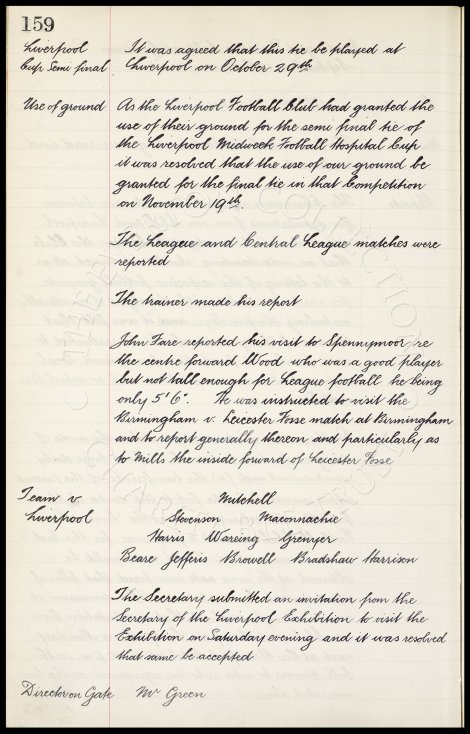 159
Liverpool
Cup Semi final
It was agreed that this tie be played at
Liverpool on October 29th
Use of ground
As the Liverpool Football Club had granted the
use of their ground for the semi final tie of
the Liverpool Midweek Football Hospital Cup
it was resolved that the use of our ground be
granted for the final tie in that Competition
on November 19th.
The League and Central League matches were
reported
The trainer made his report
John Fare reported his visit to Spennymoor re
the centre forward Wood who was a good player
but not tall enough for League football he being
only 5'6". He was instructed to visit the
Birmingham v. Leicester Fosse match at Birmingham
and to report generally thereon and particularly as
to Mills the inside forward of Leicester Fosse
Team v.
Liverpool
Mitchell
Stevenson Maconnachie
Harris Wareing Grenyer
Beare Jefferis Browell Bradshaw Harrison
The Secretary submitted an invitation from the
Secretary of the Liverpool Exhibition to visit the
Exhibition on Saturday evening and it was resolved
that same be accepted
Director on Gate Mr Green